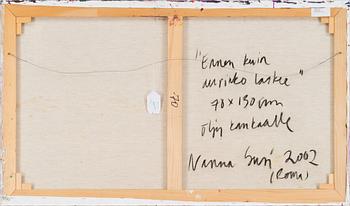 "Ennen kuin
aurinko laskee"
70 x 130 cm
öljy kankaalle
Nanna Susi 2002
(Roma)
70